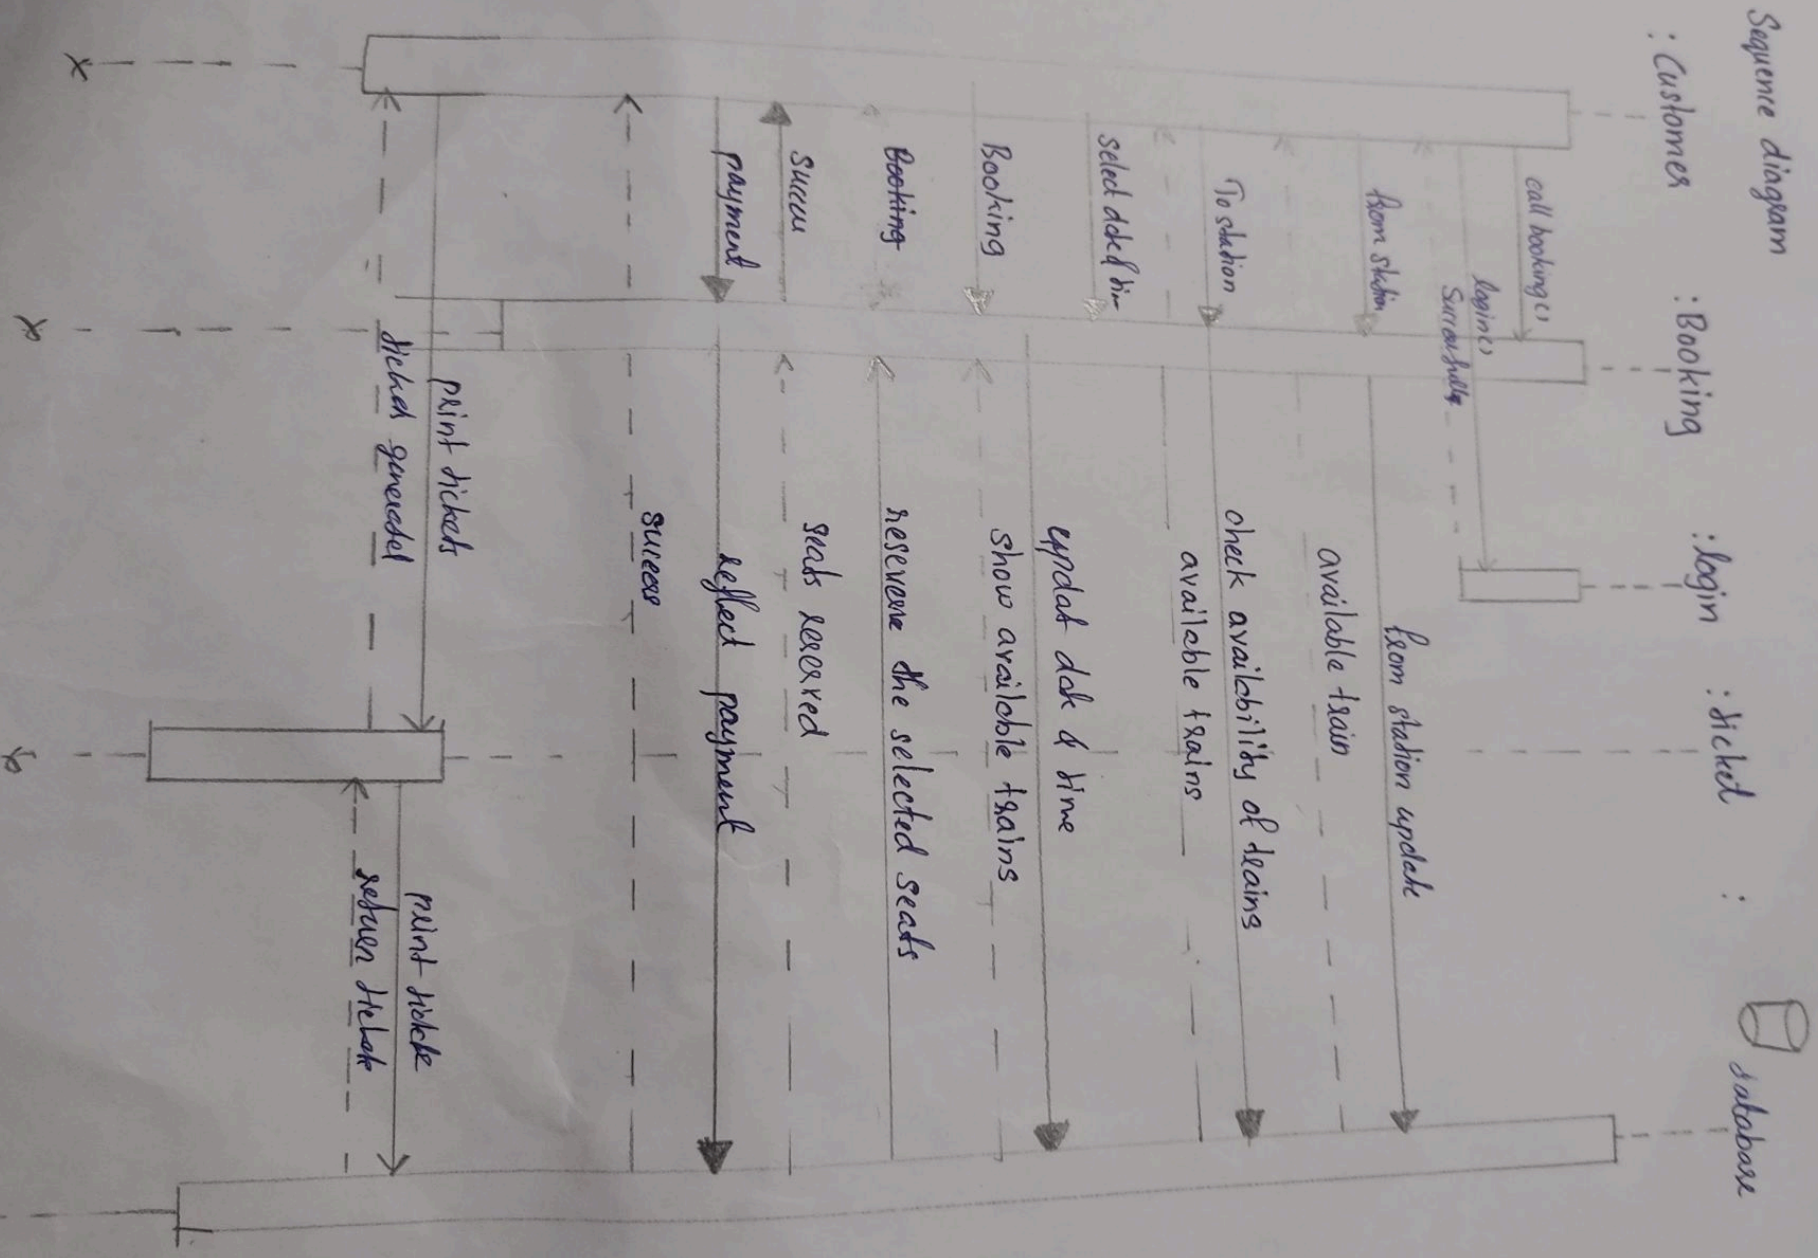 Sequence diagram
: Customer
: Booking
: login
: ticket
:
database
call booking()
login()
Successfully
from station
from station update
available train
To station
check availability of trains
available trains
select date &
updat date & time
Booking
show available trains
Booking
reserve the selected seats
succes
seats reserved
payment
reflect payment
success
print tickets
ticket generated
print ticke
return ticket